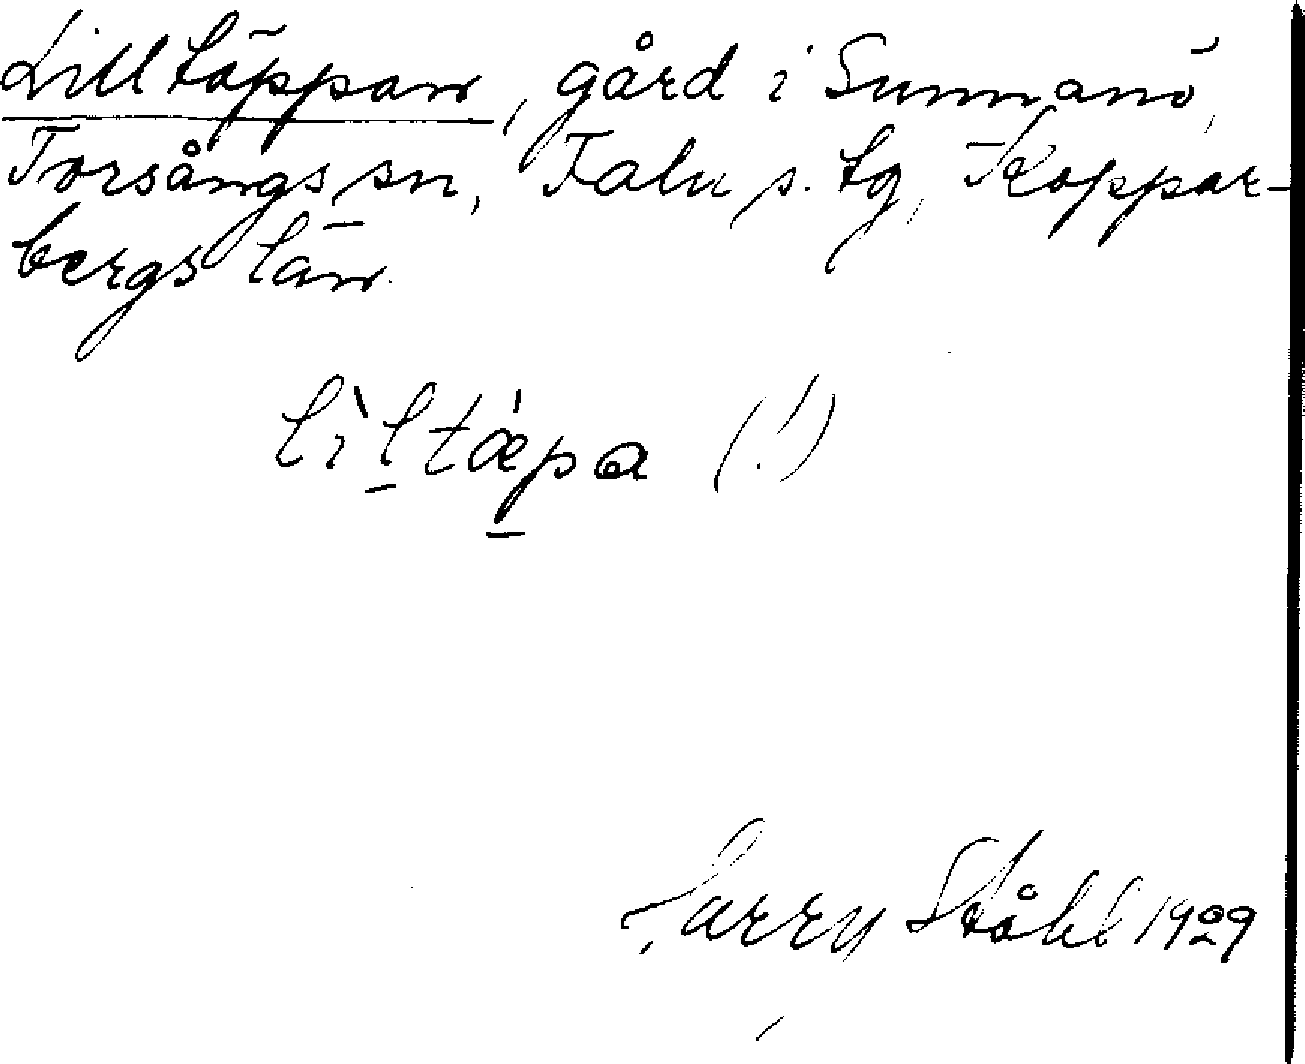 Lilltäppan, gård i Sunnanö,
Torsångs sn, Falu s. tg, Koppar-
bergs län.
lìl̠tǽp̠a (!)
Harry Ståhl 1929